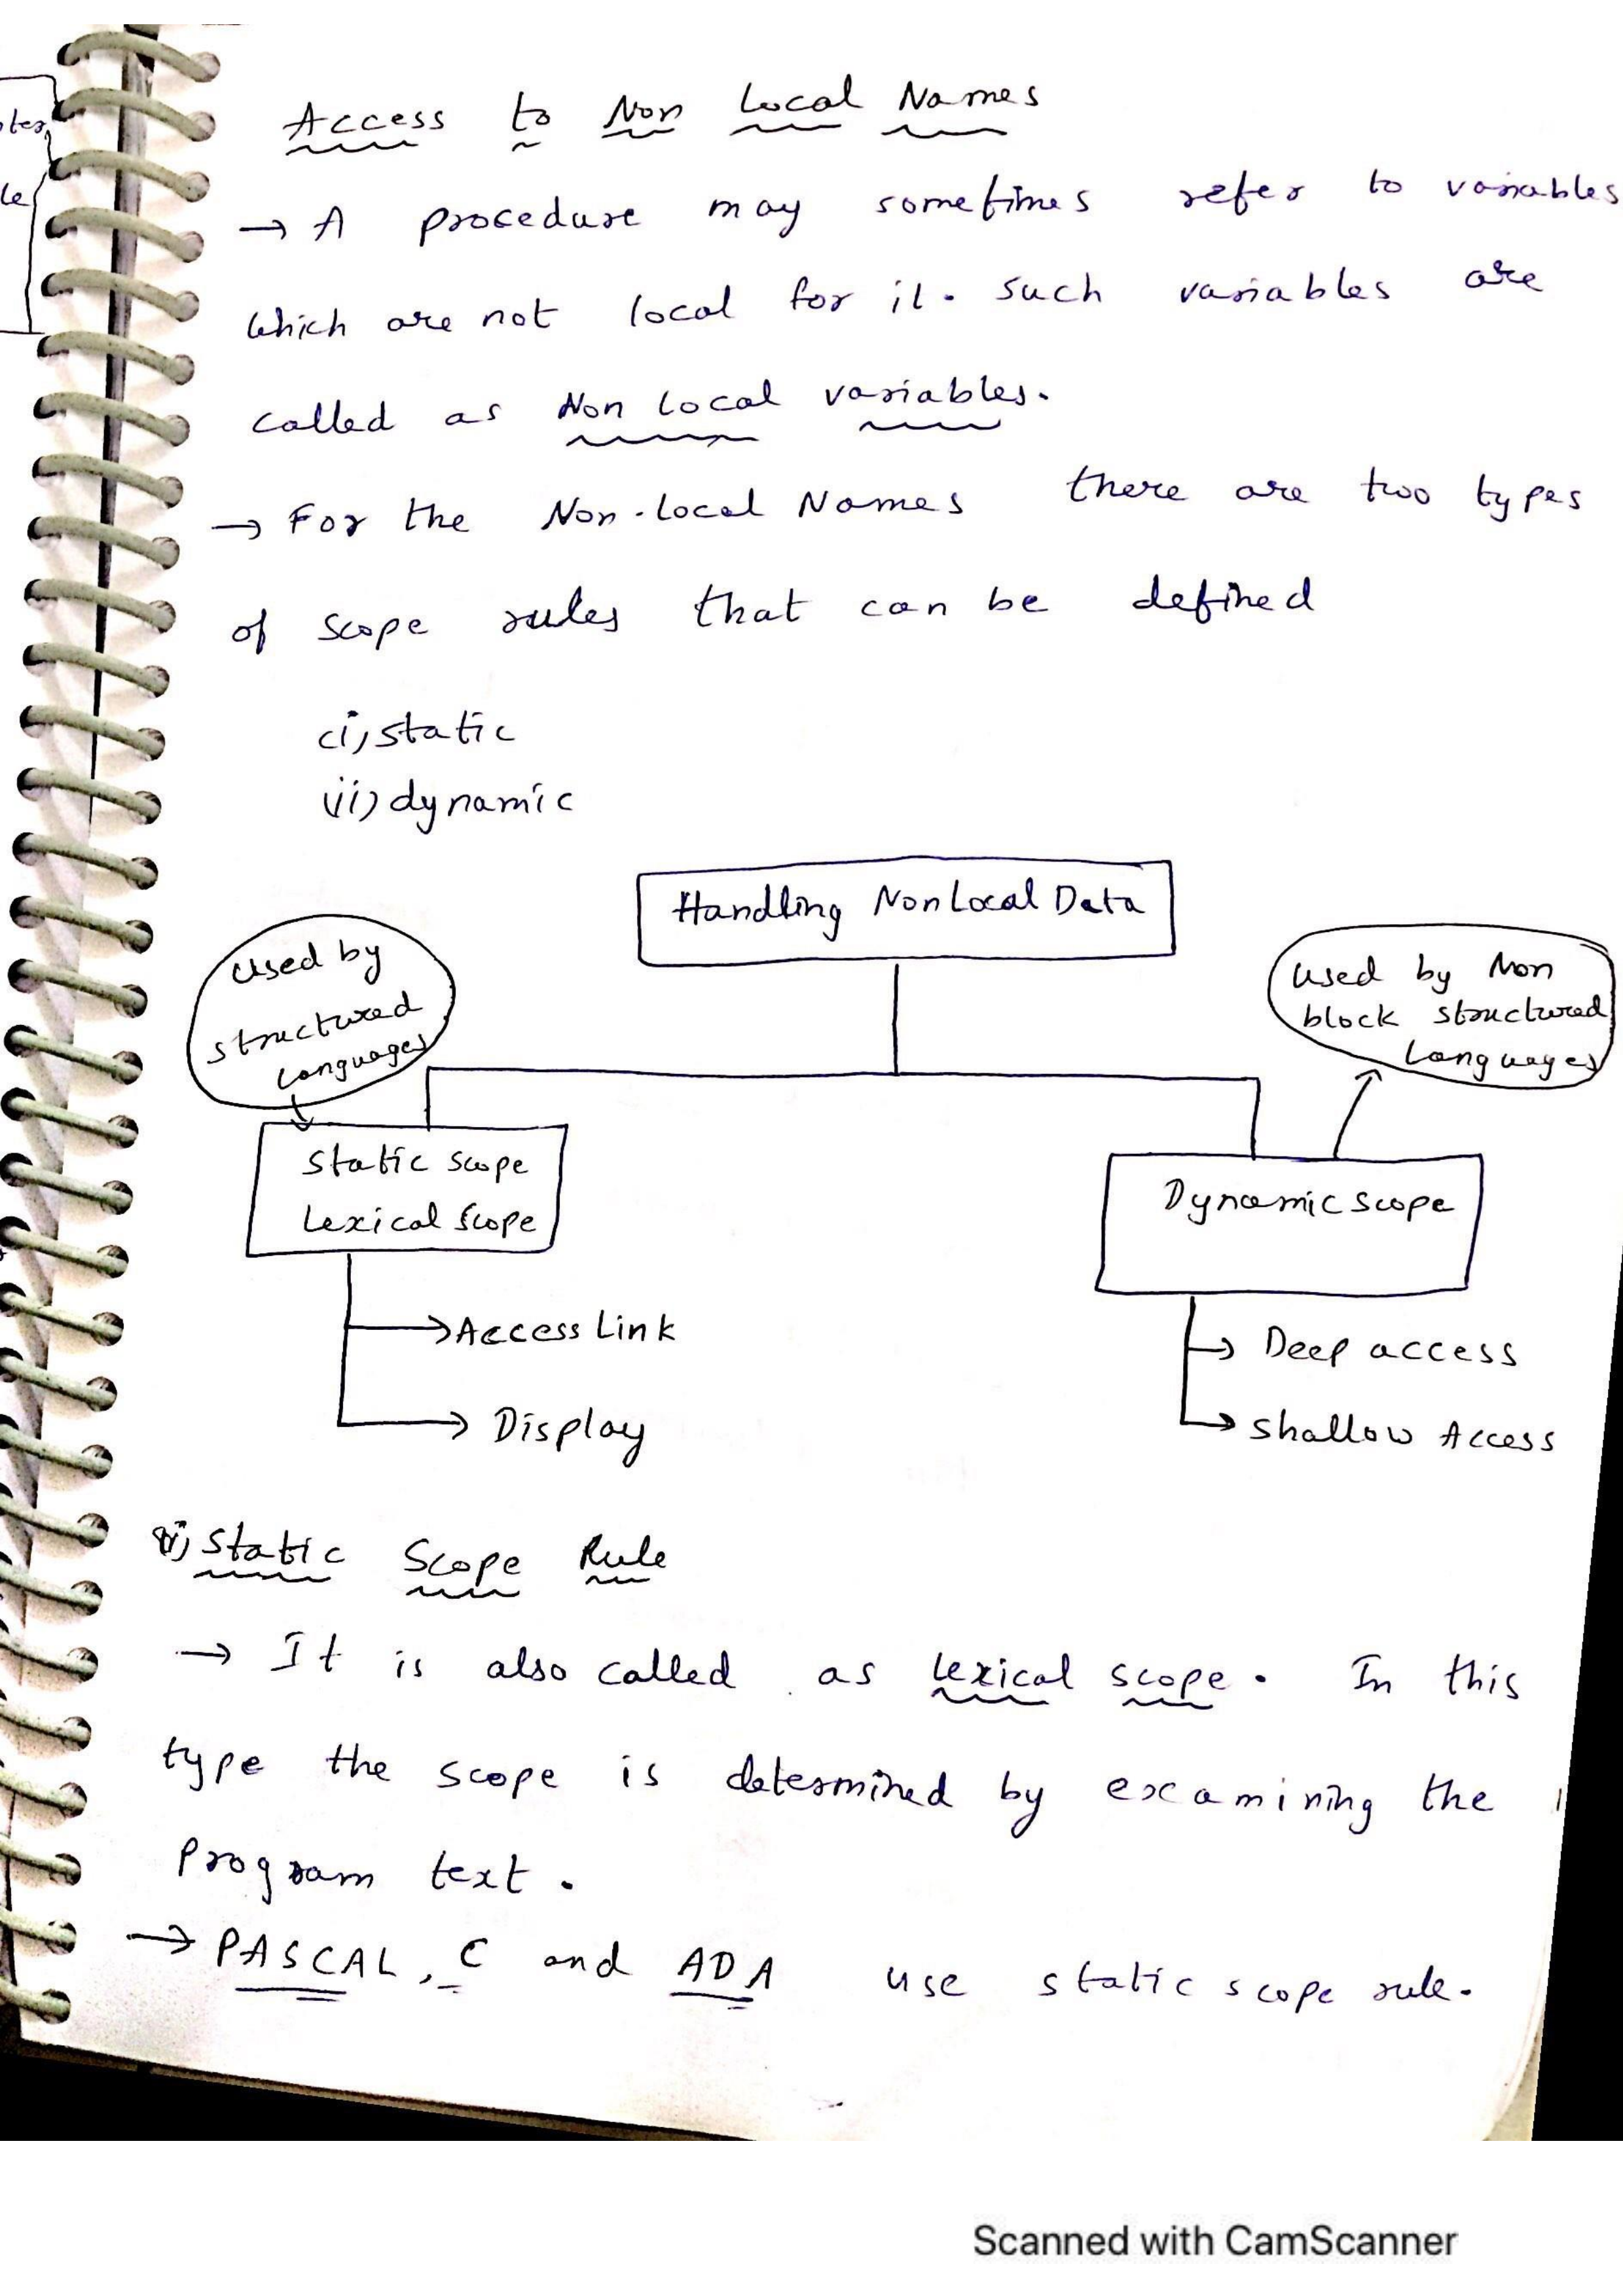 Access to Non Local Names
→ A procedure may sometimes refer to variables
which are not local for it. such variables are
called as Non Local variables.
→ For the Non-Local Names there are two types
of scope rules that can be defined
(i) static
(ii) dynamic
Handling NonLocal Data
Used by
structured
Languages
Used by Non
block structured
Languages
Static scope
Lexical Scope
Dynamic scope
→ Access Link
→ Deep access
→ Display
→ Shallow Access
i) Static Scope Rule
→ It is also called as Lexical scope. In this
type the scope is determined by examining the
program text.
→ PASCAL, C and ADA use static scope rule.
Scanned with CamScanner